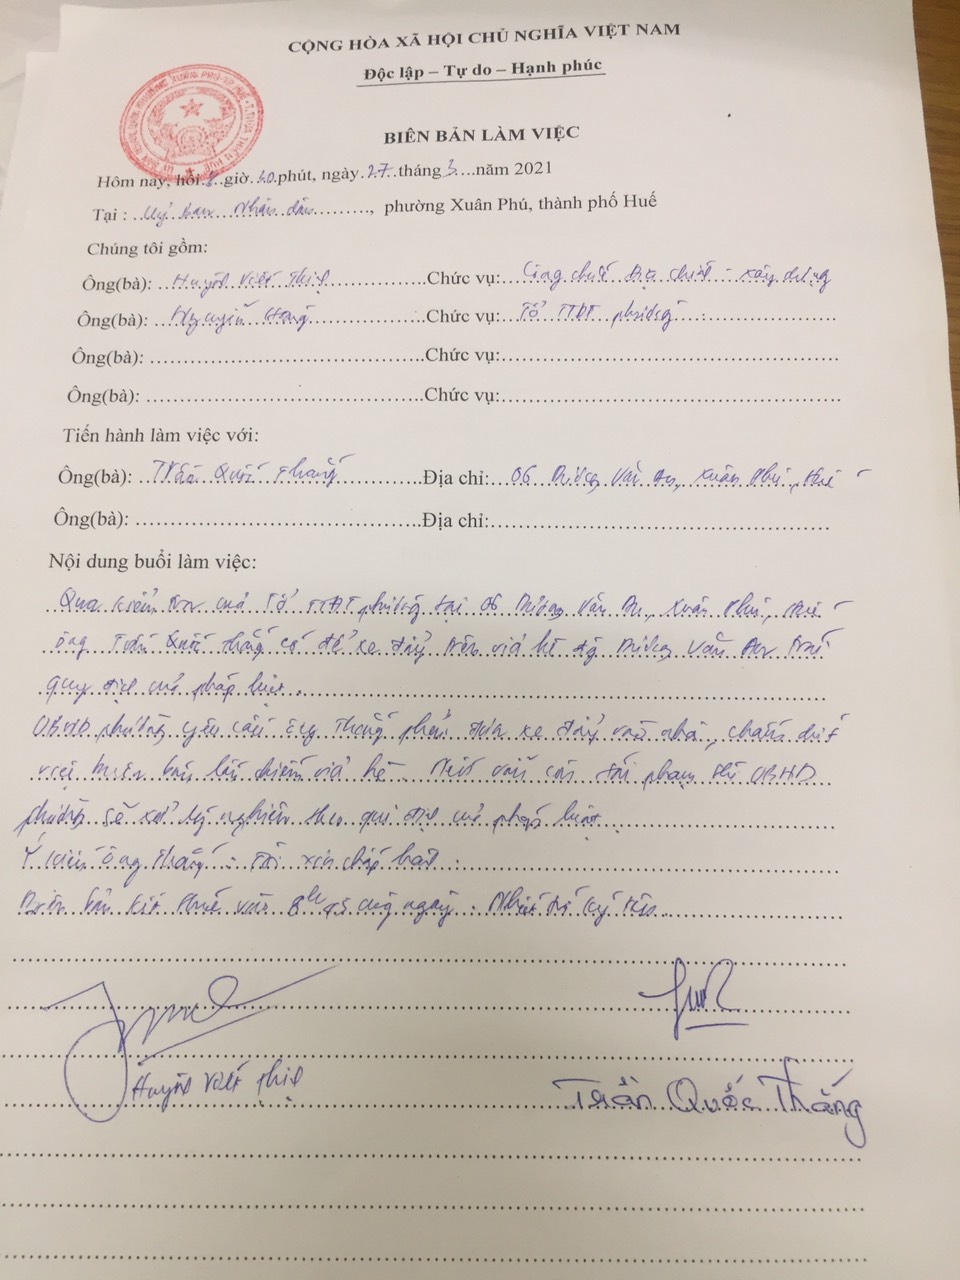 CỘNG HÒA XÃ HỘI CHỦ NGHĨA VIỆT NAM
Độc lập – Tự do – Hạnh phúc
BIÊN BẢN LÀM VIỆC
Hôm nay, hồi 8 giờ 10 phút, ngày 27 tháng 3 năm 2021
Tại : Uỷ ban Nhân dân, phường Xuân Phú, thành phố Huế
Chúng tôi gồm:
Ông(bà): Huỳnh Viết Chức vụ: Công chức Địa chính - xây dựng
Ông(bà): Nguyễn Hoàng Chức vụ: Tổ TTĐT phường
Ông(bà): Chức vụ:
Ông(bà): Chức vụ:
Tiến hành làm việc với:
Ông(bà): Trần Quốc Thắng Địa chỉ: 06 Dương Văn An, Xuân Phú, Huế
Ông(bà): Địa chỉ:
Nội dung buổi làm việc:
Qua kiểm tra của Tổ TTĐT phường tại 06 Dương Văn An, Xuân Phú, Huế
ông Trần Quốc Thắng có để xe đẩy trên vỉa hè đg Dương Văn An trái
quy định của pháp luật.
UBND phường yêu cầu ông Thắng phải đưa xe đẩy vào nhà, chấm dứt
việc buôn bán lấn chiếm vỉa hè. Nếu còn tái phạm thì UBND
phường sẽ xử lý nghiêm theo qui định của pháp luật.
Ý kiến ông Thắng: Tôi xin chấp hành.
Biên bản kết thúc vào 8h45 cùng ngày. Nhất trí ký tên.
Huỳnh Viết
Trần Quốc Thắng